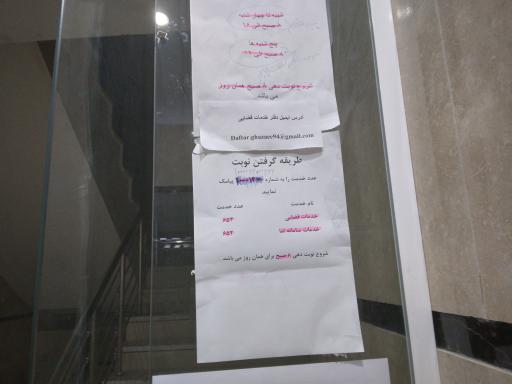 شنبه تا چهار شنبه
۸ صبح الی ۱۶
پنج شنبه ها
۸ صبح الی
شروع نوبت دهی ۸ صبح همان روز
می باشد
ادرس ایمیل دفتر خدمات قضایی
@gmail.com
طریقه گرفتن نوبت
عدد خدمت را به شماره پیامک
نمایید
نام خدمت عدد خدمت
خدمات قضایی ۶۵۳
خدمات سامانه ثنا ۶۵۴
شروع نوبت دهی ۸ صبح برای همان روز می باشد